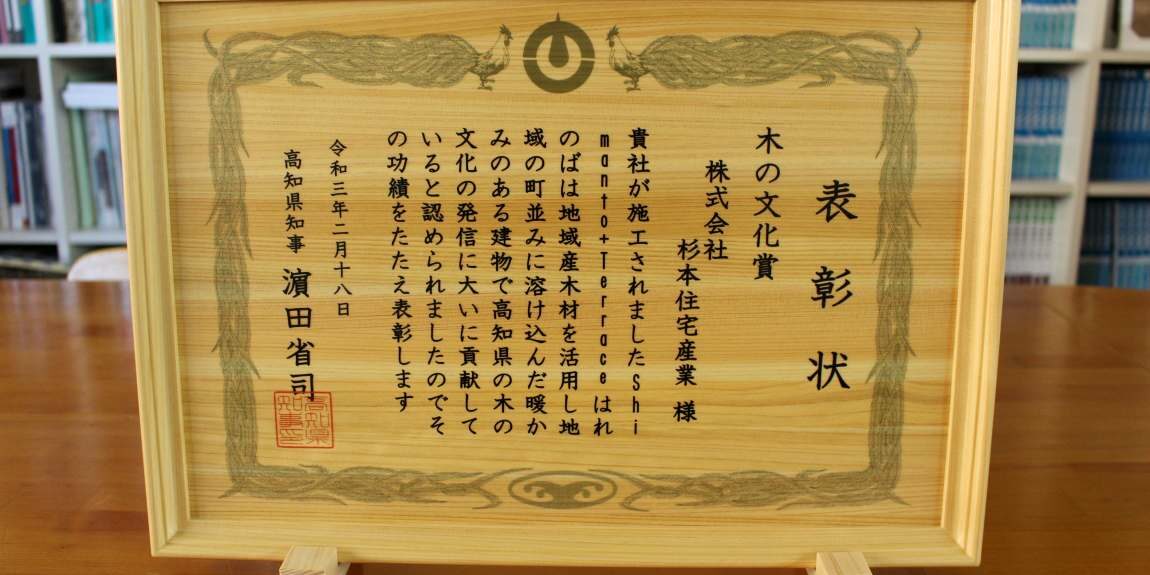 表彰状
木の文化賞
株式会社
杉本住宅産業 様
貴社が施工されましたShi
manto+Terraceはれ
のばは地域産木材を活用し地
域の町並みに溶け込んだ暖か
みのある建物で高知県の木の
文化の発信に大いに貢献して
いると認められましたのでそ
の功績をたたえ表彰します
令和三年二月十八日
高知県知事 濵田省司
高知県
知事印